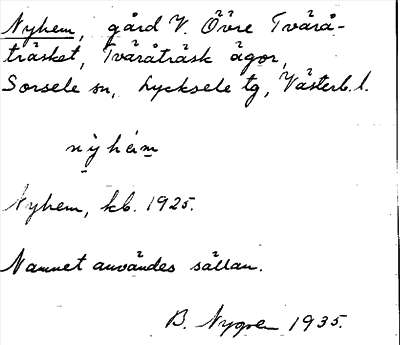 Nyhem, gård V. Övre Tvärå-
träsket, Tväråträsk ägor,
Sorsele sn, Lycksele tg, Västerb. l.
nỳhéim
Nyhem, kb. 1925.
Namnet användes sällan.
B. Nygren 1935.